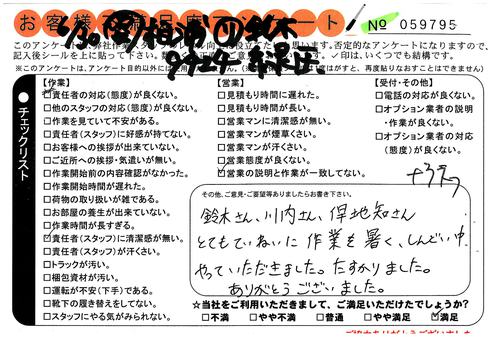 お客様
№ 059795
このアンケートは、弊社作業
記入後シールを上に貼って下さい。
否定的なアンケートになりますので、
✓印は、いくつでも結構です。
(※このアンケートは、アンケート目的以外には
再度貼りなおすことはできません)
チェックリスト
【作業】
責任者の対応(態度)が良くない。
他のスタッフの対応(態度)が良くない。
作業を見ていて不安がある。
責任者(スタッフ)に好感が持てない。
お客様への挨拶が出来ていない。
ご近所への挨拶・気遣いが無い。
作業開始前の内容確認がなかった。
作業開始時間が遅れた。
荷物の取り扱いが雑である。
お部屋の養生が出来ていない。
作業時間が長すぎる。
責任者(スタッフ)に清潔感が無い。
責任者(スタッフ)が汗くさい。
トラックが汚い。
梱包資材が汚い。
運転が不安(下手)である。
靴下の履き替えをしてない。
スタッフにやる気がみられない。
【営業】
見積もり時間に遅れた。
見積もり時間が長い。
営業マンに清潔感が無い。
営業マンが煙草くさい。
営業マンが汗くさい。
営業態度が良くない。
営業の説明と作業が一致してない。
【受付・その他】
電話の対応が良くない。
オプション業者の説明
・作業が良くない。
オプション業者の対応
(態度)が良くない。
その他、ご意見・ご要望等ありましたらお書き下さい。
鈴木さん、川内さん、伊地知さん
とてもていねいに作業を暑く、しんどい中
やっていただきました。たすかりました。
ありがとうございました。
☆当社をご利用いただきまして、ご満足いただけたでしょうか?
不満 やや不満 普通 やや満足 満足